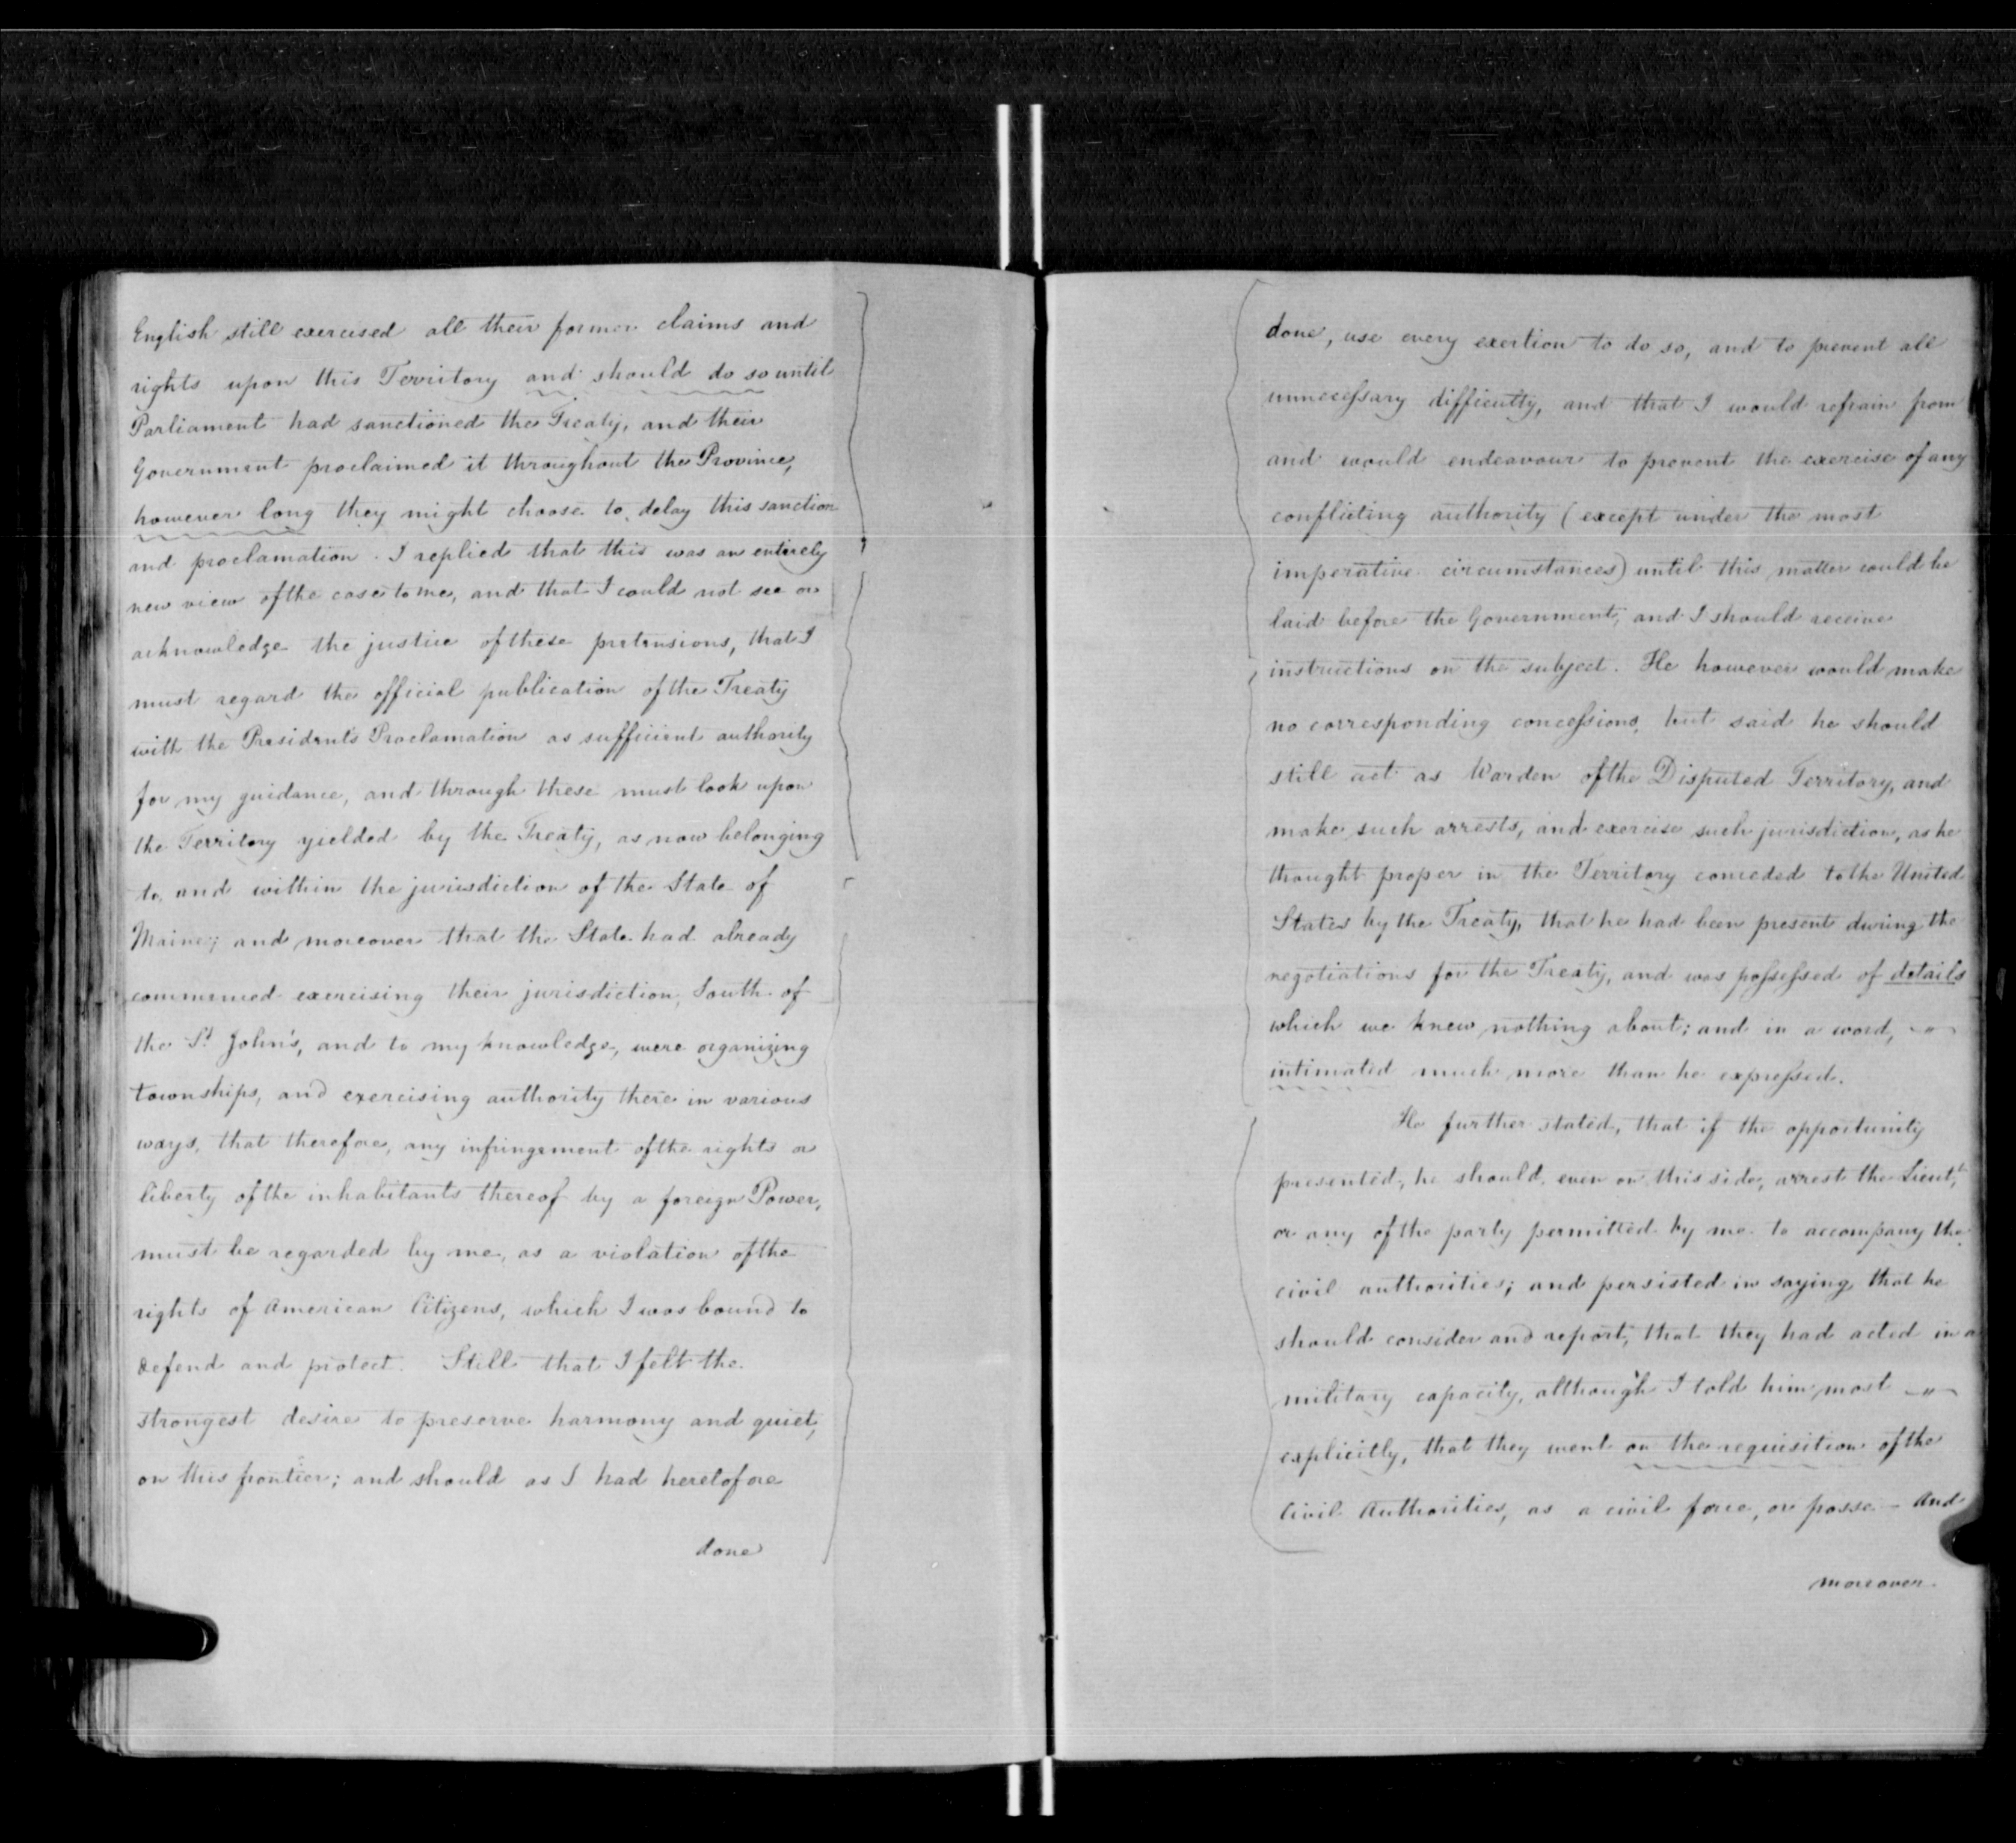 English still exercised all their former claims and
rights upon this Territory and should do so until
Parliament had sanctioned the Treaty, and their
Government proclaimed it throughout the Province,
however long they might choose to delay this sanction
and proclamation. I replied that this was an entirely
new view of the case to me, and that I could not see or
acknowledge the justice of these pretensions, that I
must regard the official publication of the Treaty
with the President's Proclamation as sufficient authority
for my guidance, and through these must look upon
the Territory yielded by the Treaty, as now belonging
to, and within the jurisdiction of the State of
Maine; and moreover that the State had already
commenced exercising their jurisdiction, South of
the St. John's, and to my knowledge, were organizing
townships, and exercising authority there in various
ways, that therefore, any infringement of the rights or
liberty of the inhabitants thereof by a foreign Power,
must be regarded by me, as a violation of the
rights of American Citizens, which I was bound to
defend and protect. Still that I felt the
strongest desire to preserve harmony and quiet,
on this frontier; and should as I had heretofore
done
done, use every exertion to do so, and to prevent all
unnecessary difficulty, and that I would refrain from
and would endeavour to prevent the exercise of any
conflicting authority (except under the most
imperative circumstances) until this matter could be
laid before the Government, and I should receive
instructions on the subject. He however would make
no corresponding concessions, but said he should
still act as Warden of the Disputed Territory, and
make such arrests, and exercise such jurisdiction, as he
thought proper in the Territory conceded to the United
States by the Treaty, that he had been present during the
negotiations for the Treaty, and was possessed of details
which we knew nothing about; and in a word, —"—
intimated much more than he expressed.
He further stated, that if the opportunity
presented, he should, even on this side, arrest the Lieut,
or any of the party permitted by me to accompany the
civil authorities; and persisted in saying that he
should consider and report, that they had acted in a
military capacity, although I told him most —"—
explicitly, that they went on the requisition of the
Civil Authorities, as a civil force, or posse – And
moreover.